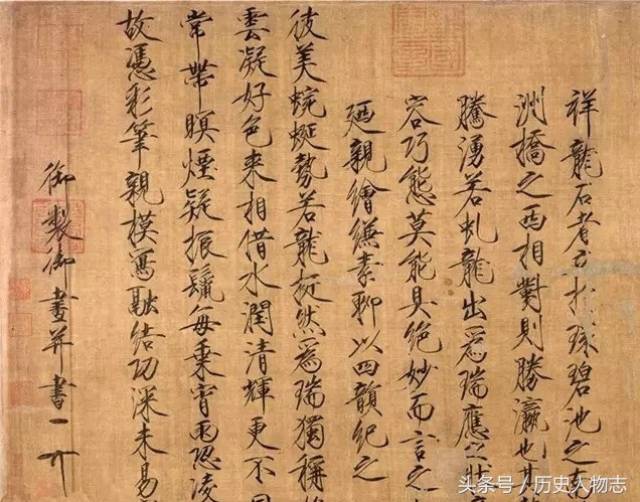 祥龍石者立於環碧池之
洲橋之西相對則勝瀛也其
騰湧若虬龍出爲瑞應之狀
容巧態莫能具絕妙而言之
廼親繪縑素聊以四韻紀之
彼美蜿蜒勢若龍挺然爲瑞獨稱
雲凝好色來相借水潤清輝更不
常帶瞑煙疑振鬣每乘宵雨恐凌
故憑彩筆親模寫融結功深未易
御製御畫并書
头条号／历史人物志